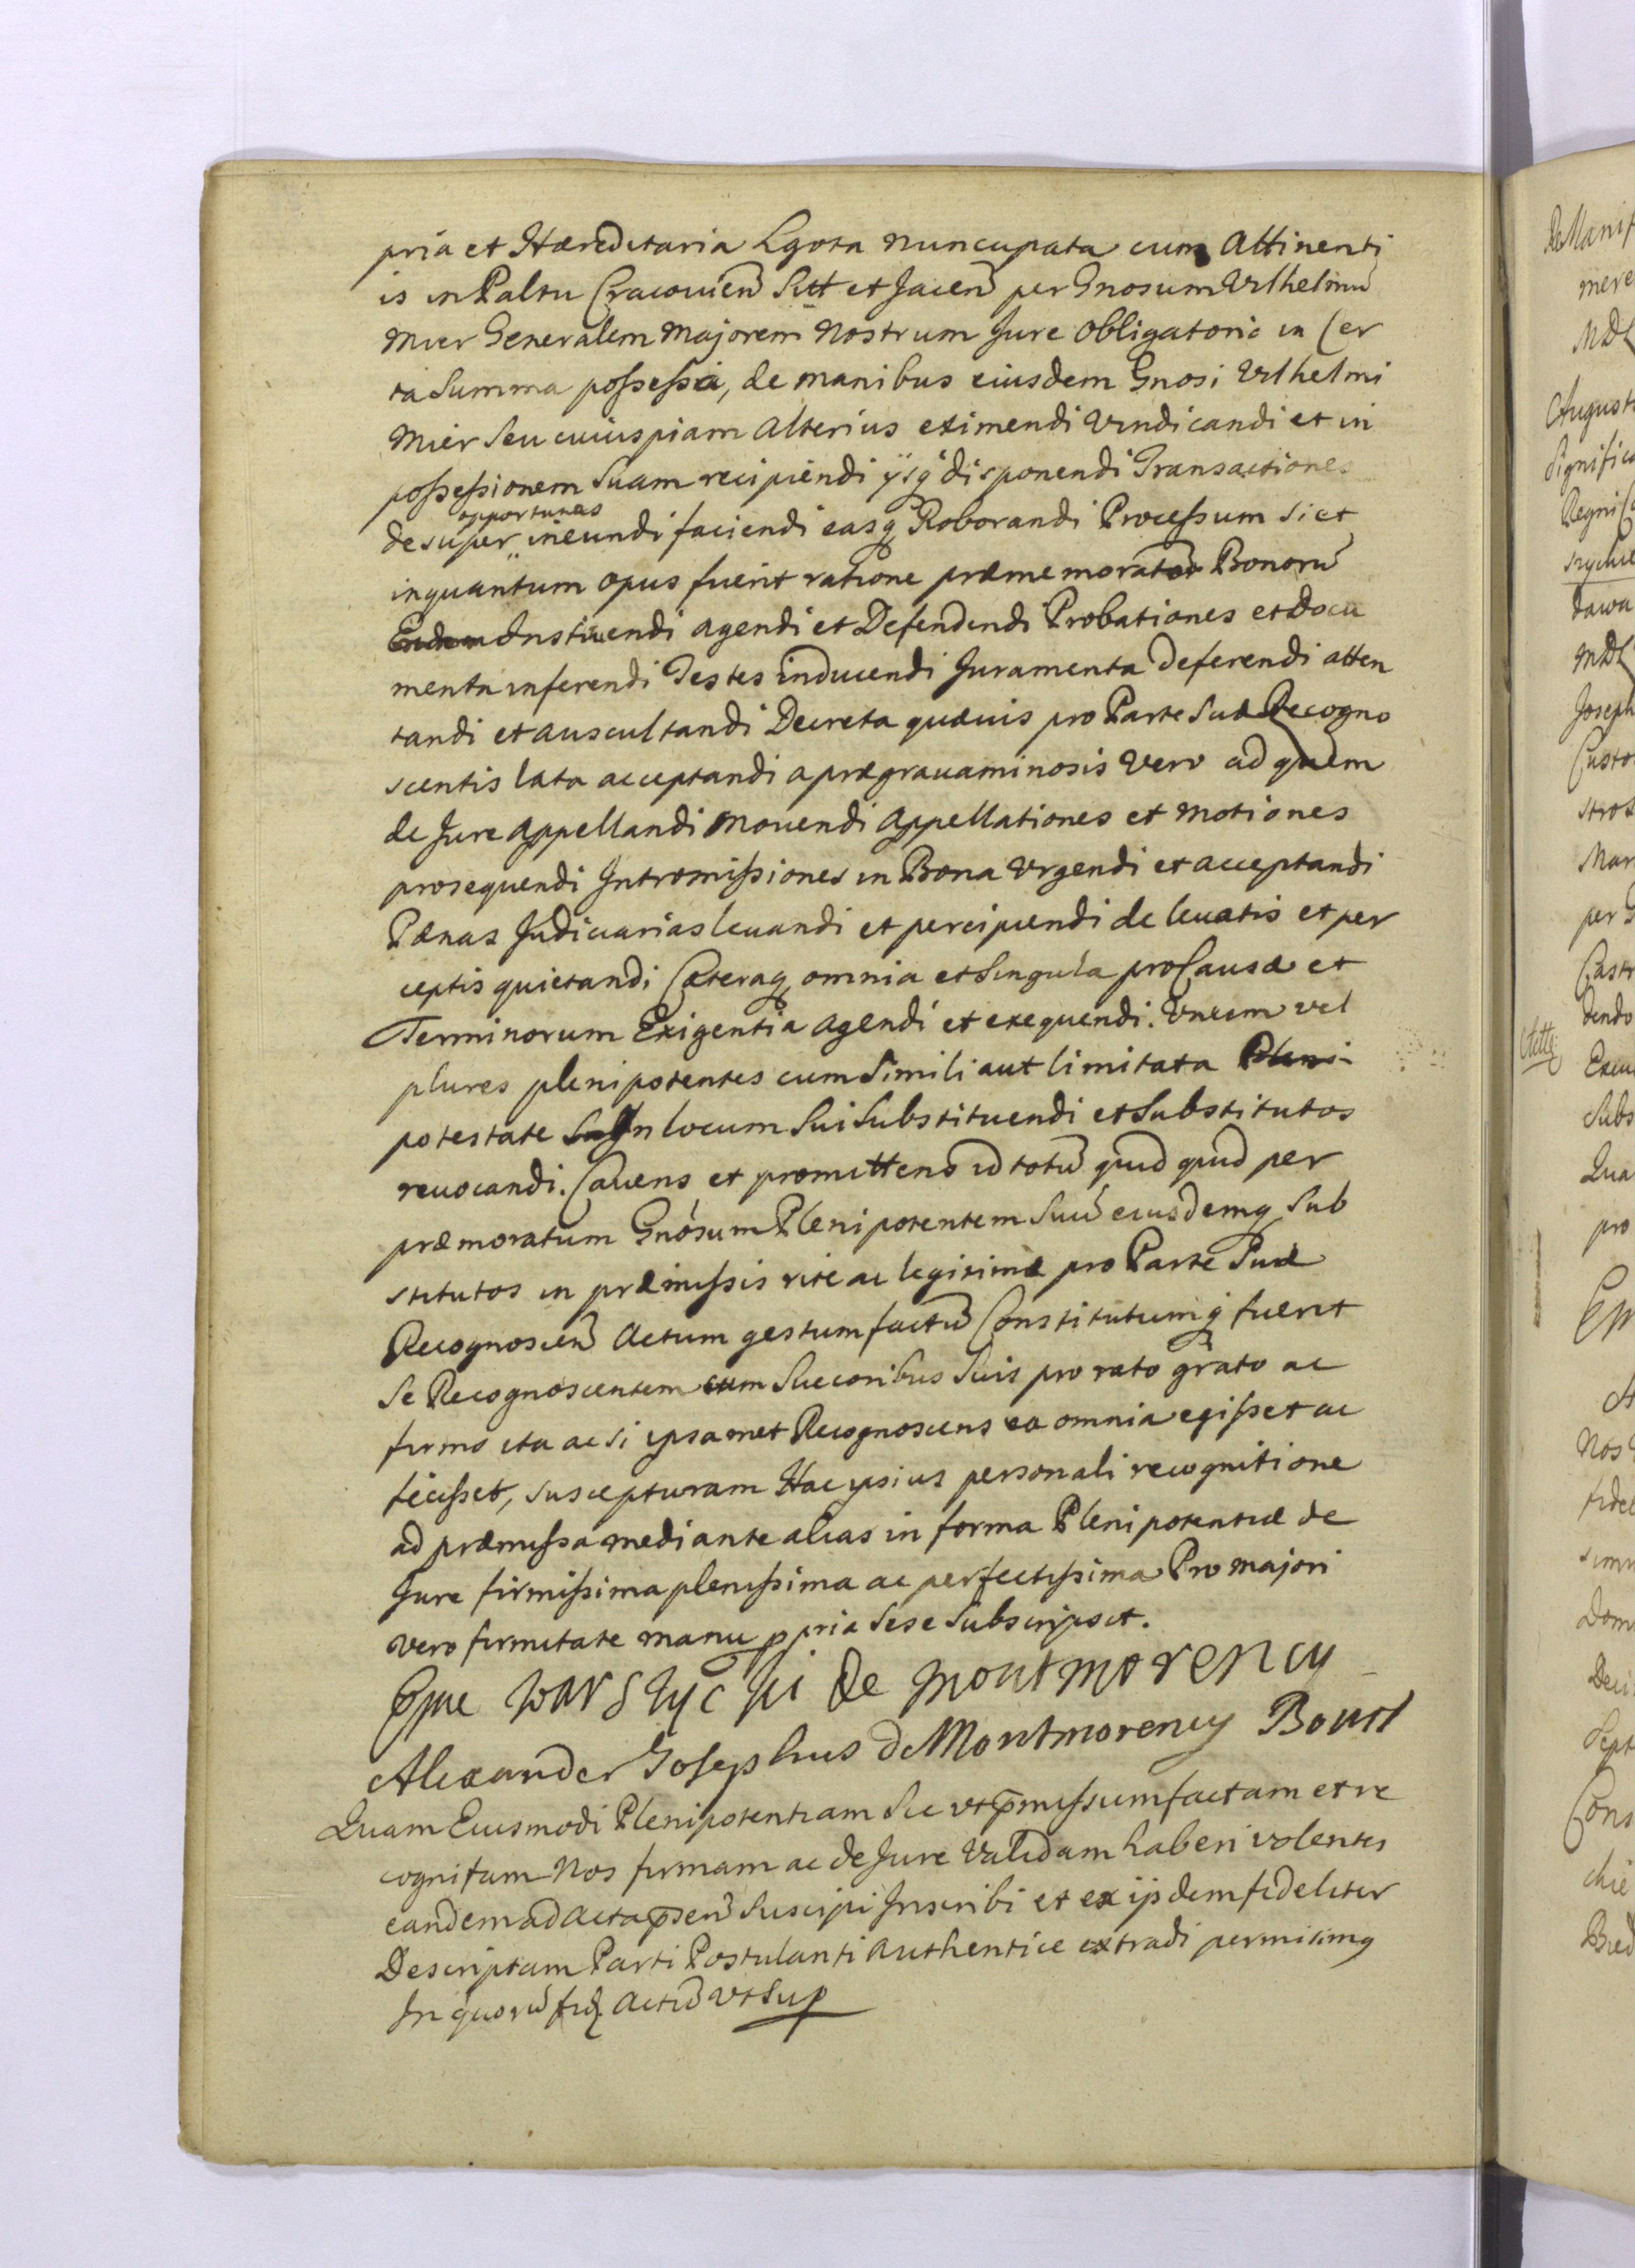 pria et Hæreditaria Lgota nuncupata cum Attinenti
is in Paltu Cracouien̄ Sitt et Jacen̄ per Gnosum Vilhelmū
Mier Generalem Majorem Nostrum Jure obligatorio in Cer
ta Summa possessa, de manibus eiusdem Gnosi Vilhelmi
Mier Seu cuiuspiam Alterius eximendi Vindicandi et in
possessionem Suam recipiendi ijsq́ disponendi Transactiones
opportunas
desuper ineundi faciendi easq Roborandi Processum si et
inquantum opus fuerit ratione præmemorator Bonorū
Instituendi agendi et Defendendi Probationes et Docu
menta inferendi Testes inducendi Juramenta Deferendi atten
tandi et auscultandi Decreta quæuis pro Parte Suæ Recogno
scentis lata acceptandi a prægrauaminosis Vero ad quem
de Jure Appellandi Mouendi Appellationes et Motiones
prosequendi Intromissiones in Bona Vrgendi et acceptandi
Pænas Judiciarias leuandi et percipiendi de leuatis et per
ceptis quietandi Cæteraq omnia et Singula pro Causæ et
Terminorum Exigentia Agendi et exequendi. Vnum vel
plures plenipotentes cum Simili aut limitata Pleni-
potestate In locum Sui Substituendi et Substitutos
reuocandi. Cauens et promittens id totū quid quid per
præmoratum Gnósum Plenipotentem Suū eiusdemq Sub
stitutos in præmissis rite ac legitimæ pro Parte Suæ
Recognoscen̄ Actum gestum factū Constitutumq́ fuerit
Se Recognoscentem cum Succoribus Suis pro rato grato ac
firmo ita ac si ipsamet Recognoscens ea omnia egisset ac
fecisset, suscepturam Hac ipsius personali recognitione
ad præmissa mediante alias in forma Plenipotentiæ de
Jure firmissima plenissima ac perfectissima Pro majori
Vero firmitate manu ppria Sese Subscripsit.
Epue warszyc ki de montmorency
Alexander Josephus de Montmorency Bours
Quam Eiusmodi Plenipotentiam Sic vt p̄missum factam et re
cognitam Nos firmam ac de Jure Validam haberi volentes
eandem ad Acta p̄sen̄ Suscipi Inscribi et ex ijsdem fideliter
Descriptam Parti Postulanti Authentice extradi permisimq
In quorū fidē Actū Vt Sup